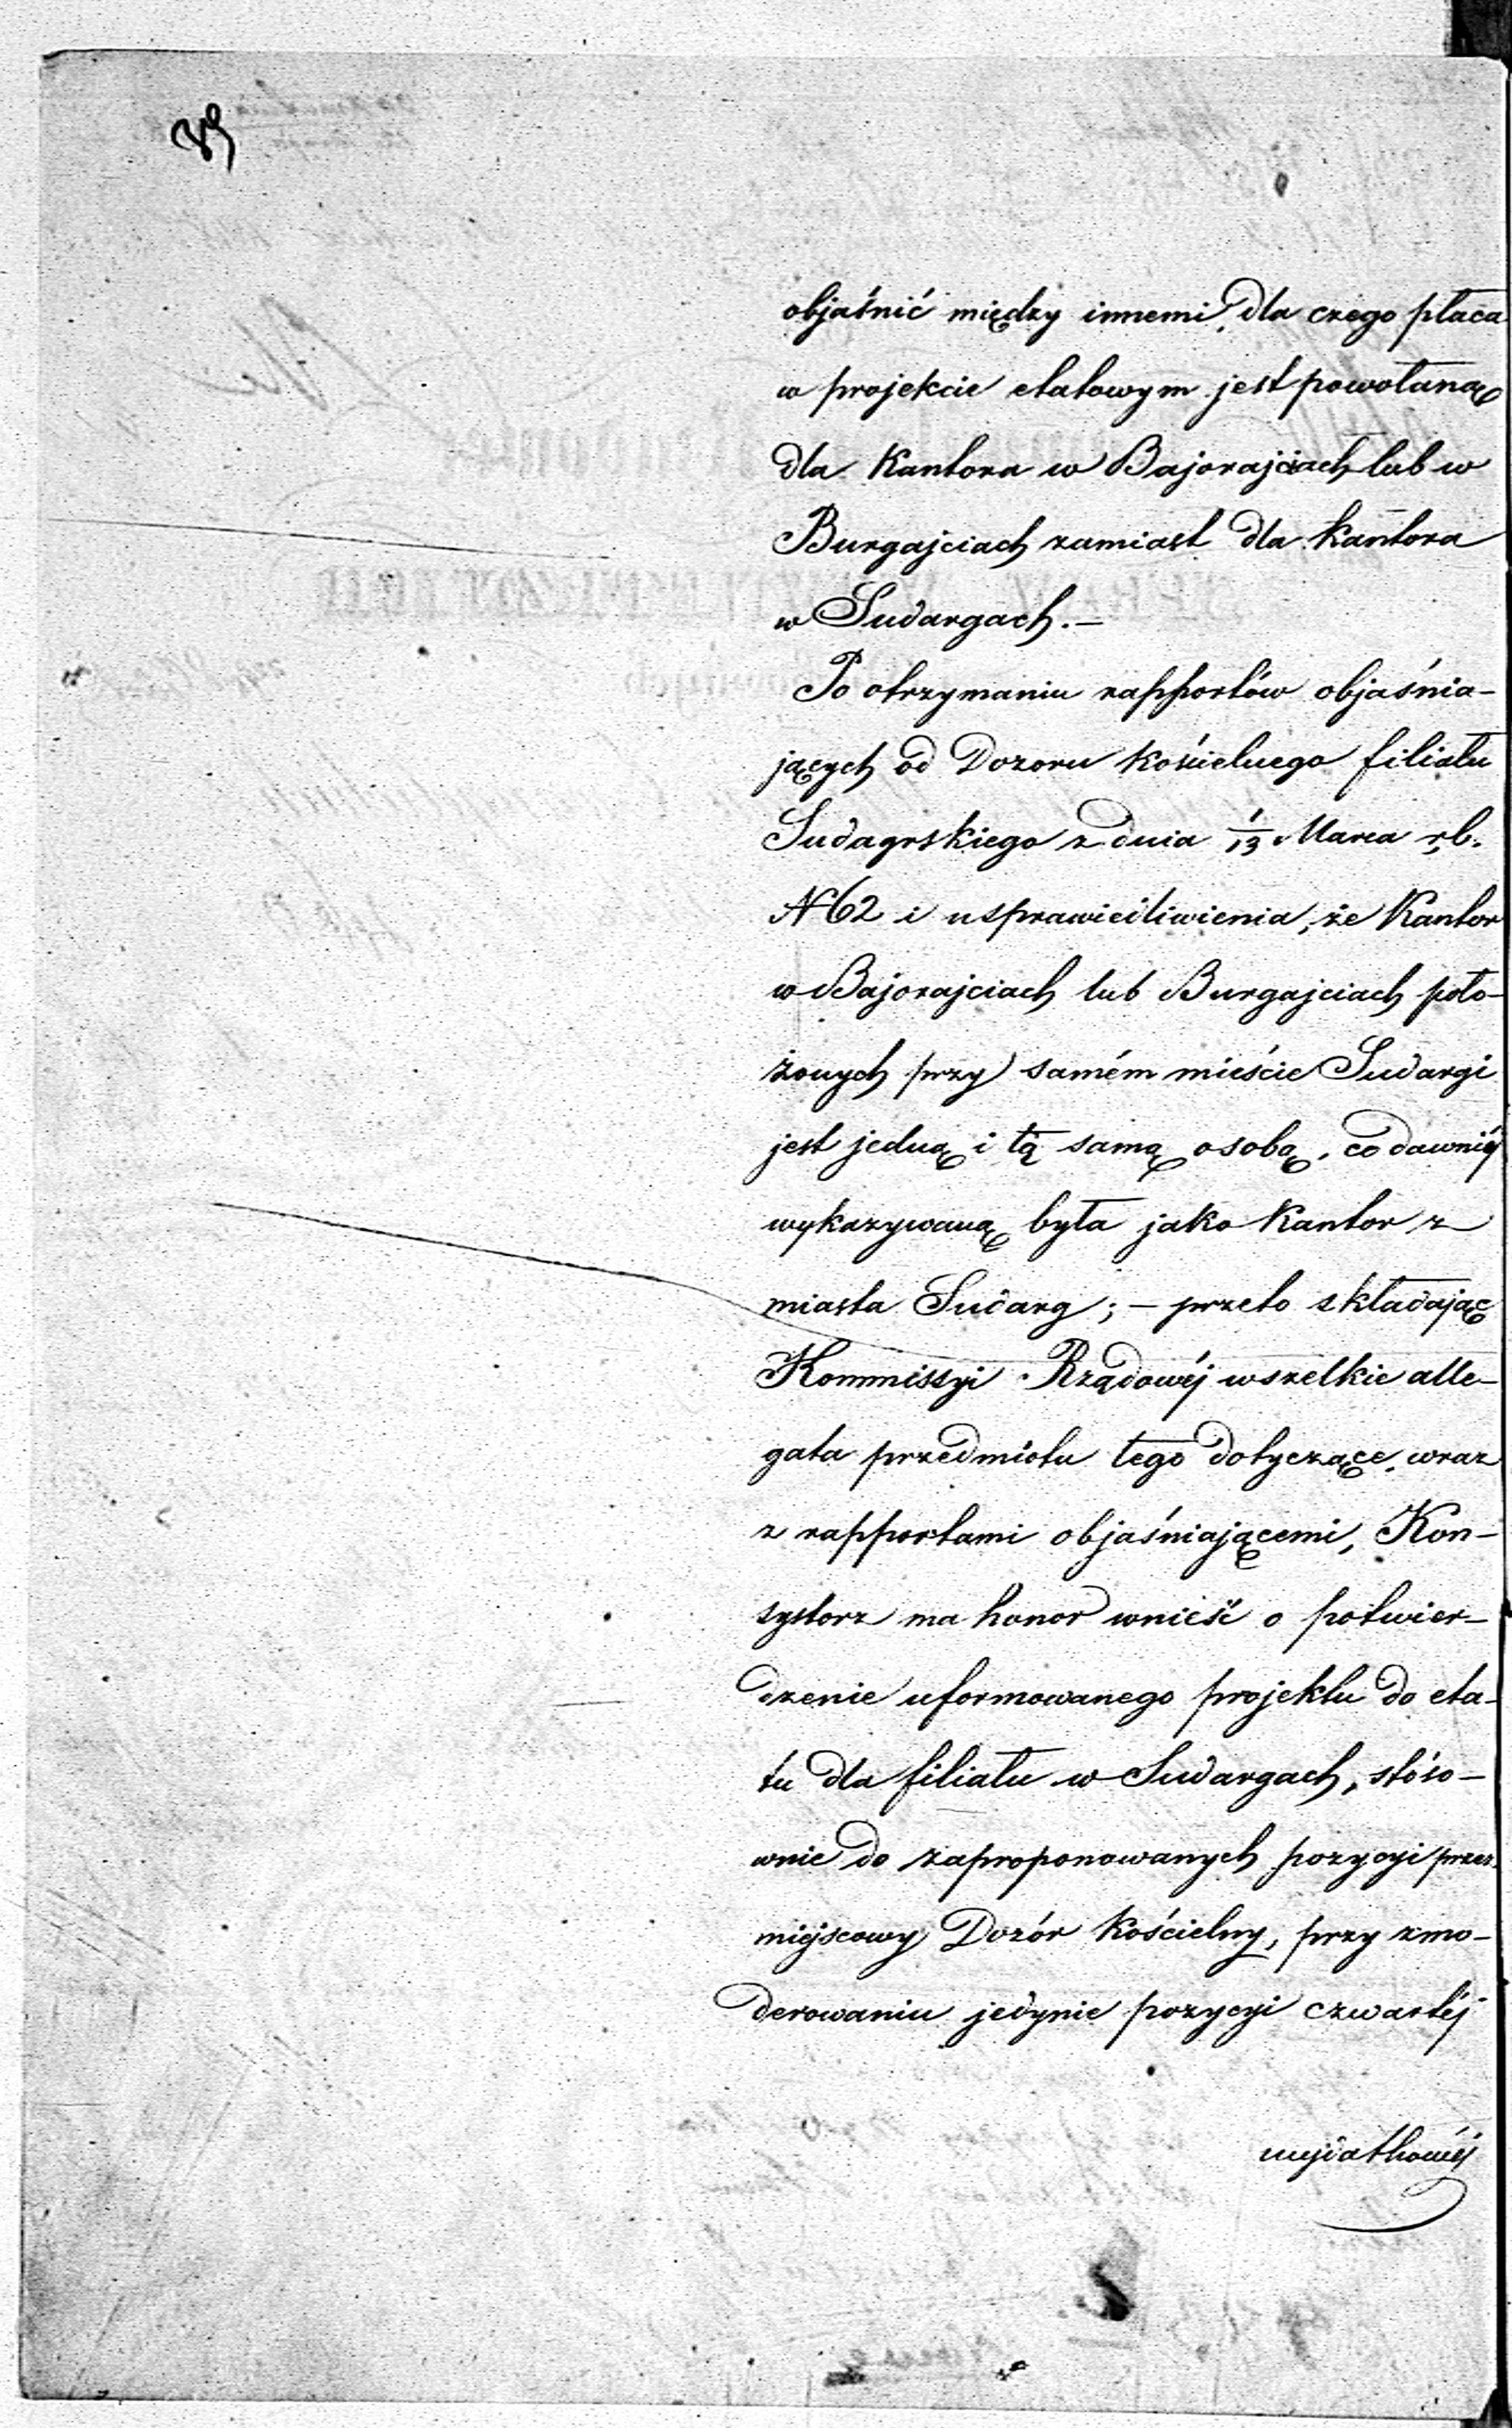 objaśnić między innemi, dla czego płaca
w projekcie etatowym jest powołaną
dla Kantora w Bajorajciach lub w
Burgajciach zamiast dla Kantora
w Sudargach.—
Po otrzymaniu rapportów objaśnia-
jących od Dozoru kościelnego filiału
Sudagrskiego z dnia 1/13 Marca r.b.
N 62 i usprawiedliwienia, że Kantor
w Bajorajciach lub Burgajciach poło-
żonych przy samém mieście Sudargi
jest jedną i tą samą osobą, co dawniéj
wykazywaną była jako Kantor z
miasta Sudarg; — przeto składając
Kommissyi Rządowéj wszelkie alle-
gata przedmiotu tego dotyczące, wraz
z rapportami objaśniającemi, Kon-
systorz ma honor wnieść o potwier-
dzenie uformowanego projektu do eta-
tu dla filiału w Sudargach, stóso-
wnie do zaproponowanych pozycyi przez
miejscowy Dozór Kościelny, przy zmo-
derowaniu jedynie pozycyi czwartéj
wydatkowéj